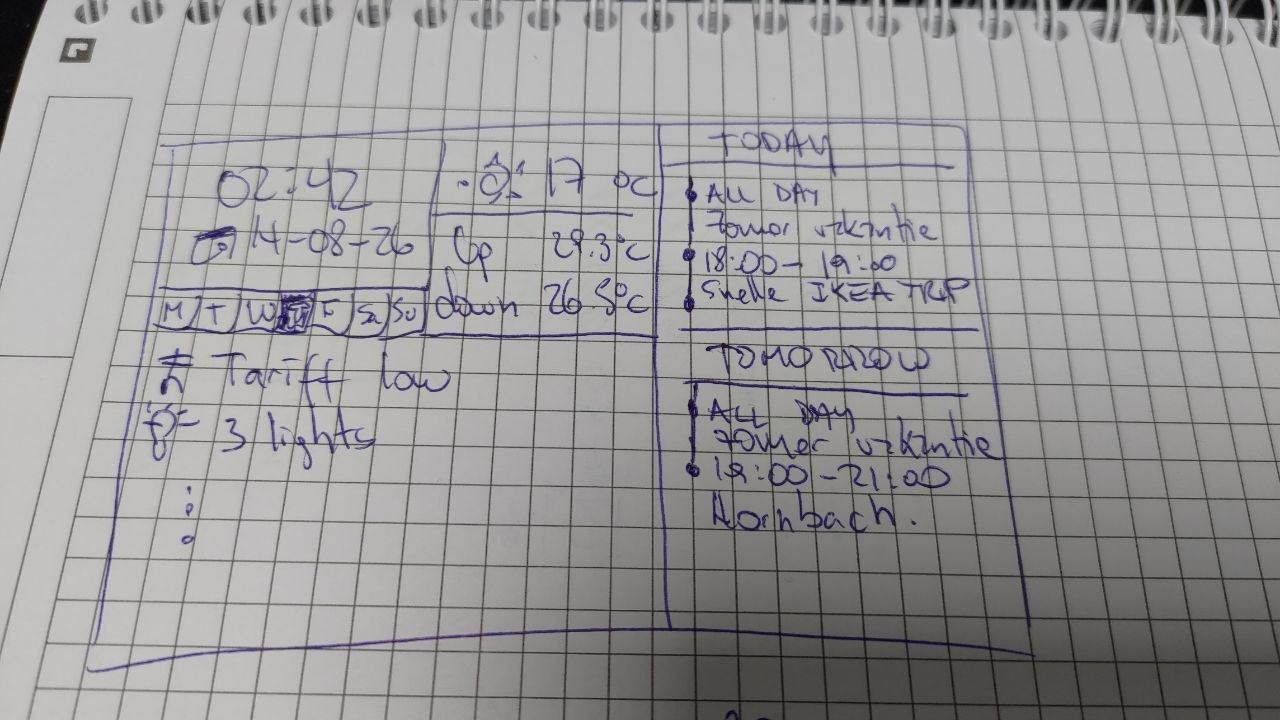 02:42
14-08-26
M T W Th F Sa Su
17 °C
Up 29.3°C
down 26.5°C
Tariff low
3 lights
TODAY
ALL DAY
Zomer vakantie
18:00 - 19:00
Snelle IKEA TRIP
TOMORROW
ALL DAY
Zomer vakantie
19:00 - 21:00
Hornbach.